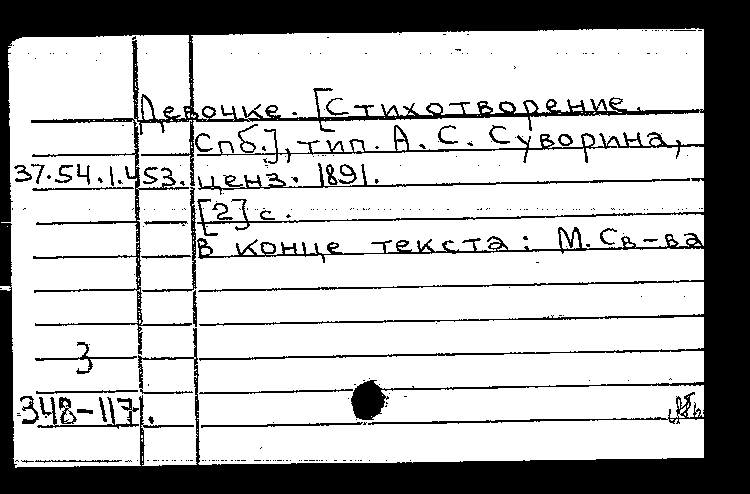 Девочке. [Стихотворение.
Спб.], тип. А. С. Суворина,
37.54.1.453. ценз. 1891.
[2] с.
В конце текста: М. Св-ва
3
348-117.